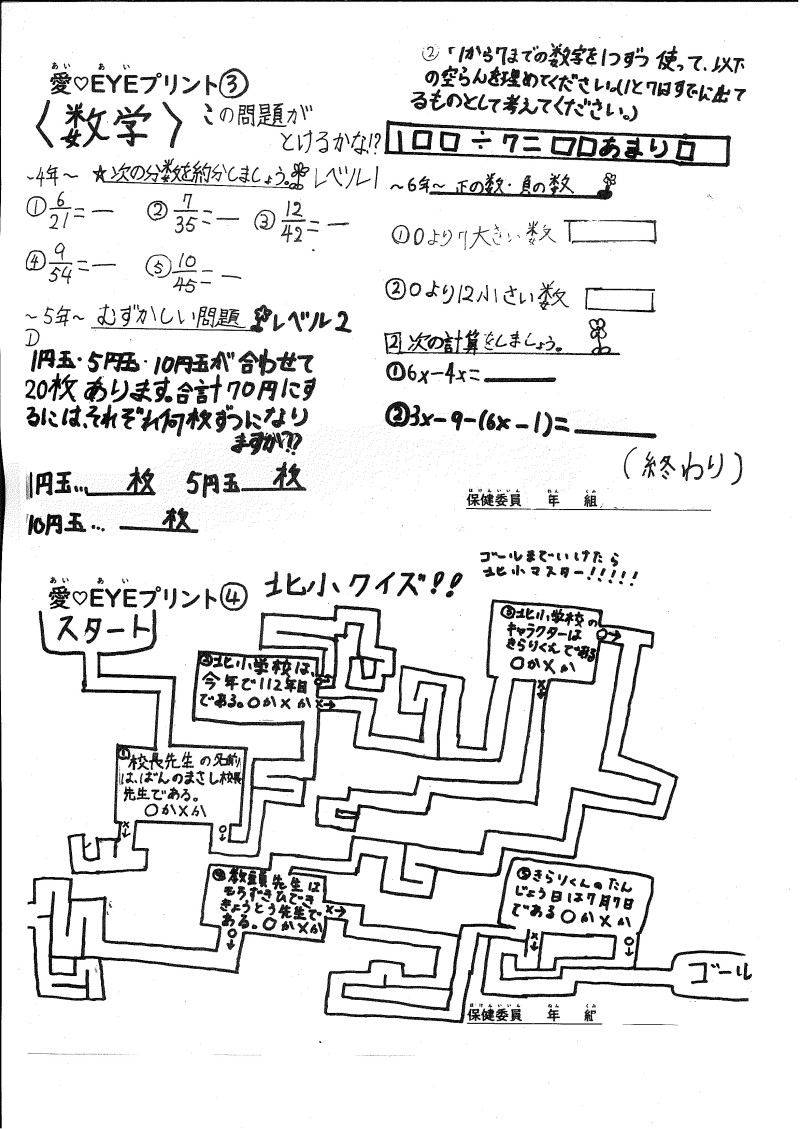 愛♡EYEプリント③
あい　あい
〈数学〉この問題が
とけるかな!?
~4年~ ☆次の分数を約分しましょう。レベル1
① 6/21=― ② 7/35=― ③ 12/42=―
④ 9/54=― ⑤ 10/45=―
~5年~ むずかしい問題 レベル2
①
1円玉・5円玉・10円玉が合わせて
20枚あります。合計70円にす
るには、それぞれ何枚ずつになり
ますか??
1円玉…＿＿枚 5円玉＿＿枚
10円玉…＿＿枚
②「1から7までの数字を1つずつ使って、以下
の空らんを埋めてください。(1と7はすでに出て
るものとして考えてください。)
1□□÷7=□□あまり□
~6年~ 正の数・負の数
①0より7大きい数
②0より12小さい数
2 次の計算をしましょう。
①6x-4x=
②3x-9-(6x-1)=
(終わり)
ほけんいいん　ねん　くみ
保健委員　年　組
あい　あい
愛♡EYEプリント④
北小クイズ!!
ゴールまでいけたら
北小マスター!!!!!
スタート
①校長先生の名前
は、ばんのまさし校長
先生である。
○か×か
×↓ ○↓
②北小学校は、
今年で112年目
である。○か×か
○→
×→
③北小学校の
キャラクターは
きらりくんである
○か×か
○→
×↓
④教頭先生は
もろずきひでき
きょうとう先生で
ある。○か×か
×→
○↓
⑤きらりくんのたん
じょう日は7月7日
である○か×か
×↓ ○↓
ゴール
ほけんいいん　ねん　くみ
保健委員　年　組